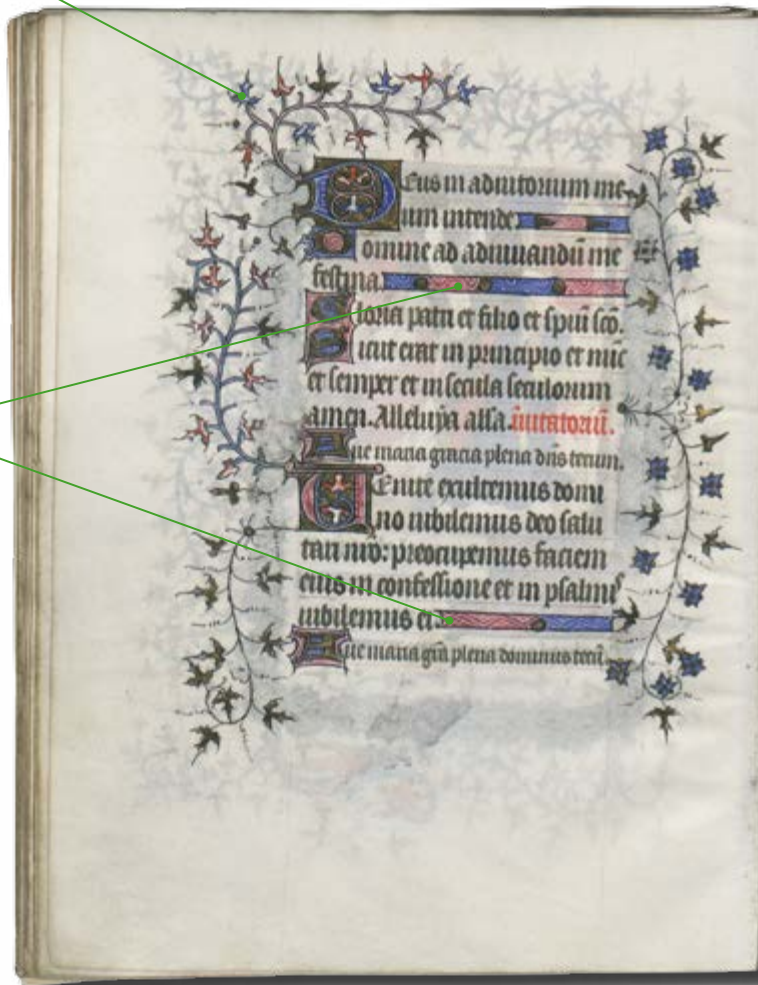 Deus in adiutorium me
um intende
Domine ad adiuuandū me
festina.
Gloria patri et filio et spiūi sc̄o.
Sicut erat in principio et nūc
et semper et in secula seculorum
amen. Alleluya alla īuitatoriū.
Aue maria gracia plena dn̄s tecum.
Uenite exultemus domi
no iubilemus deo salu
tari nr̄o: preocupemus faciem
eius in confessione et in psalmis
iubilemus ei.
Aue maria gr̄a plena dominus tecū.